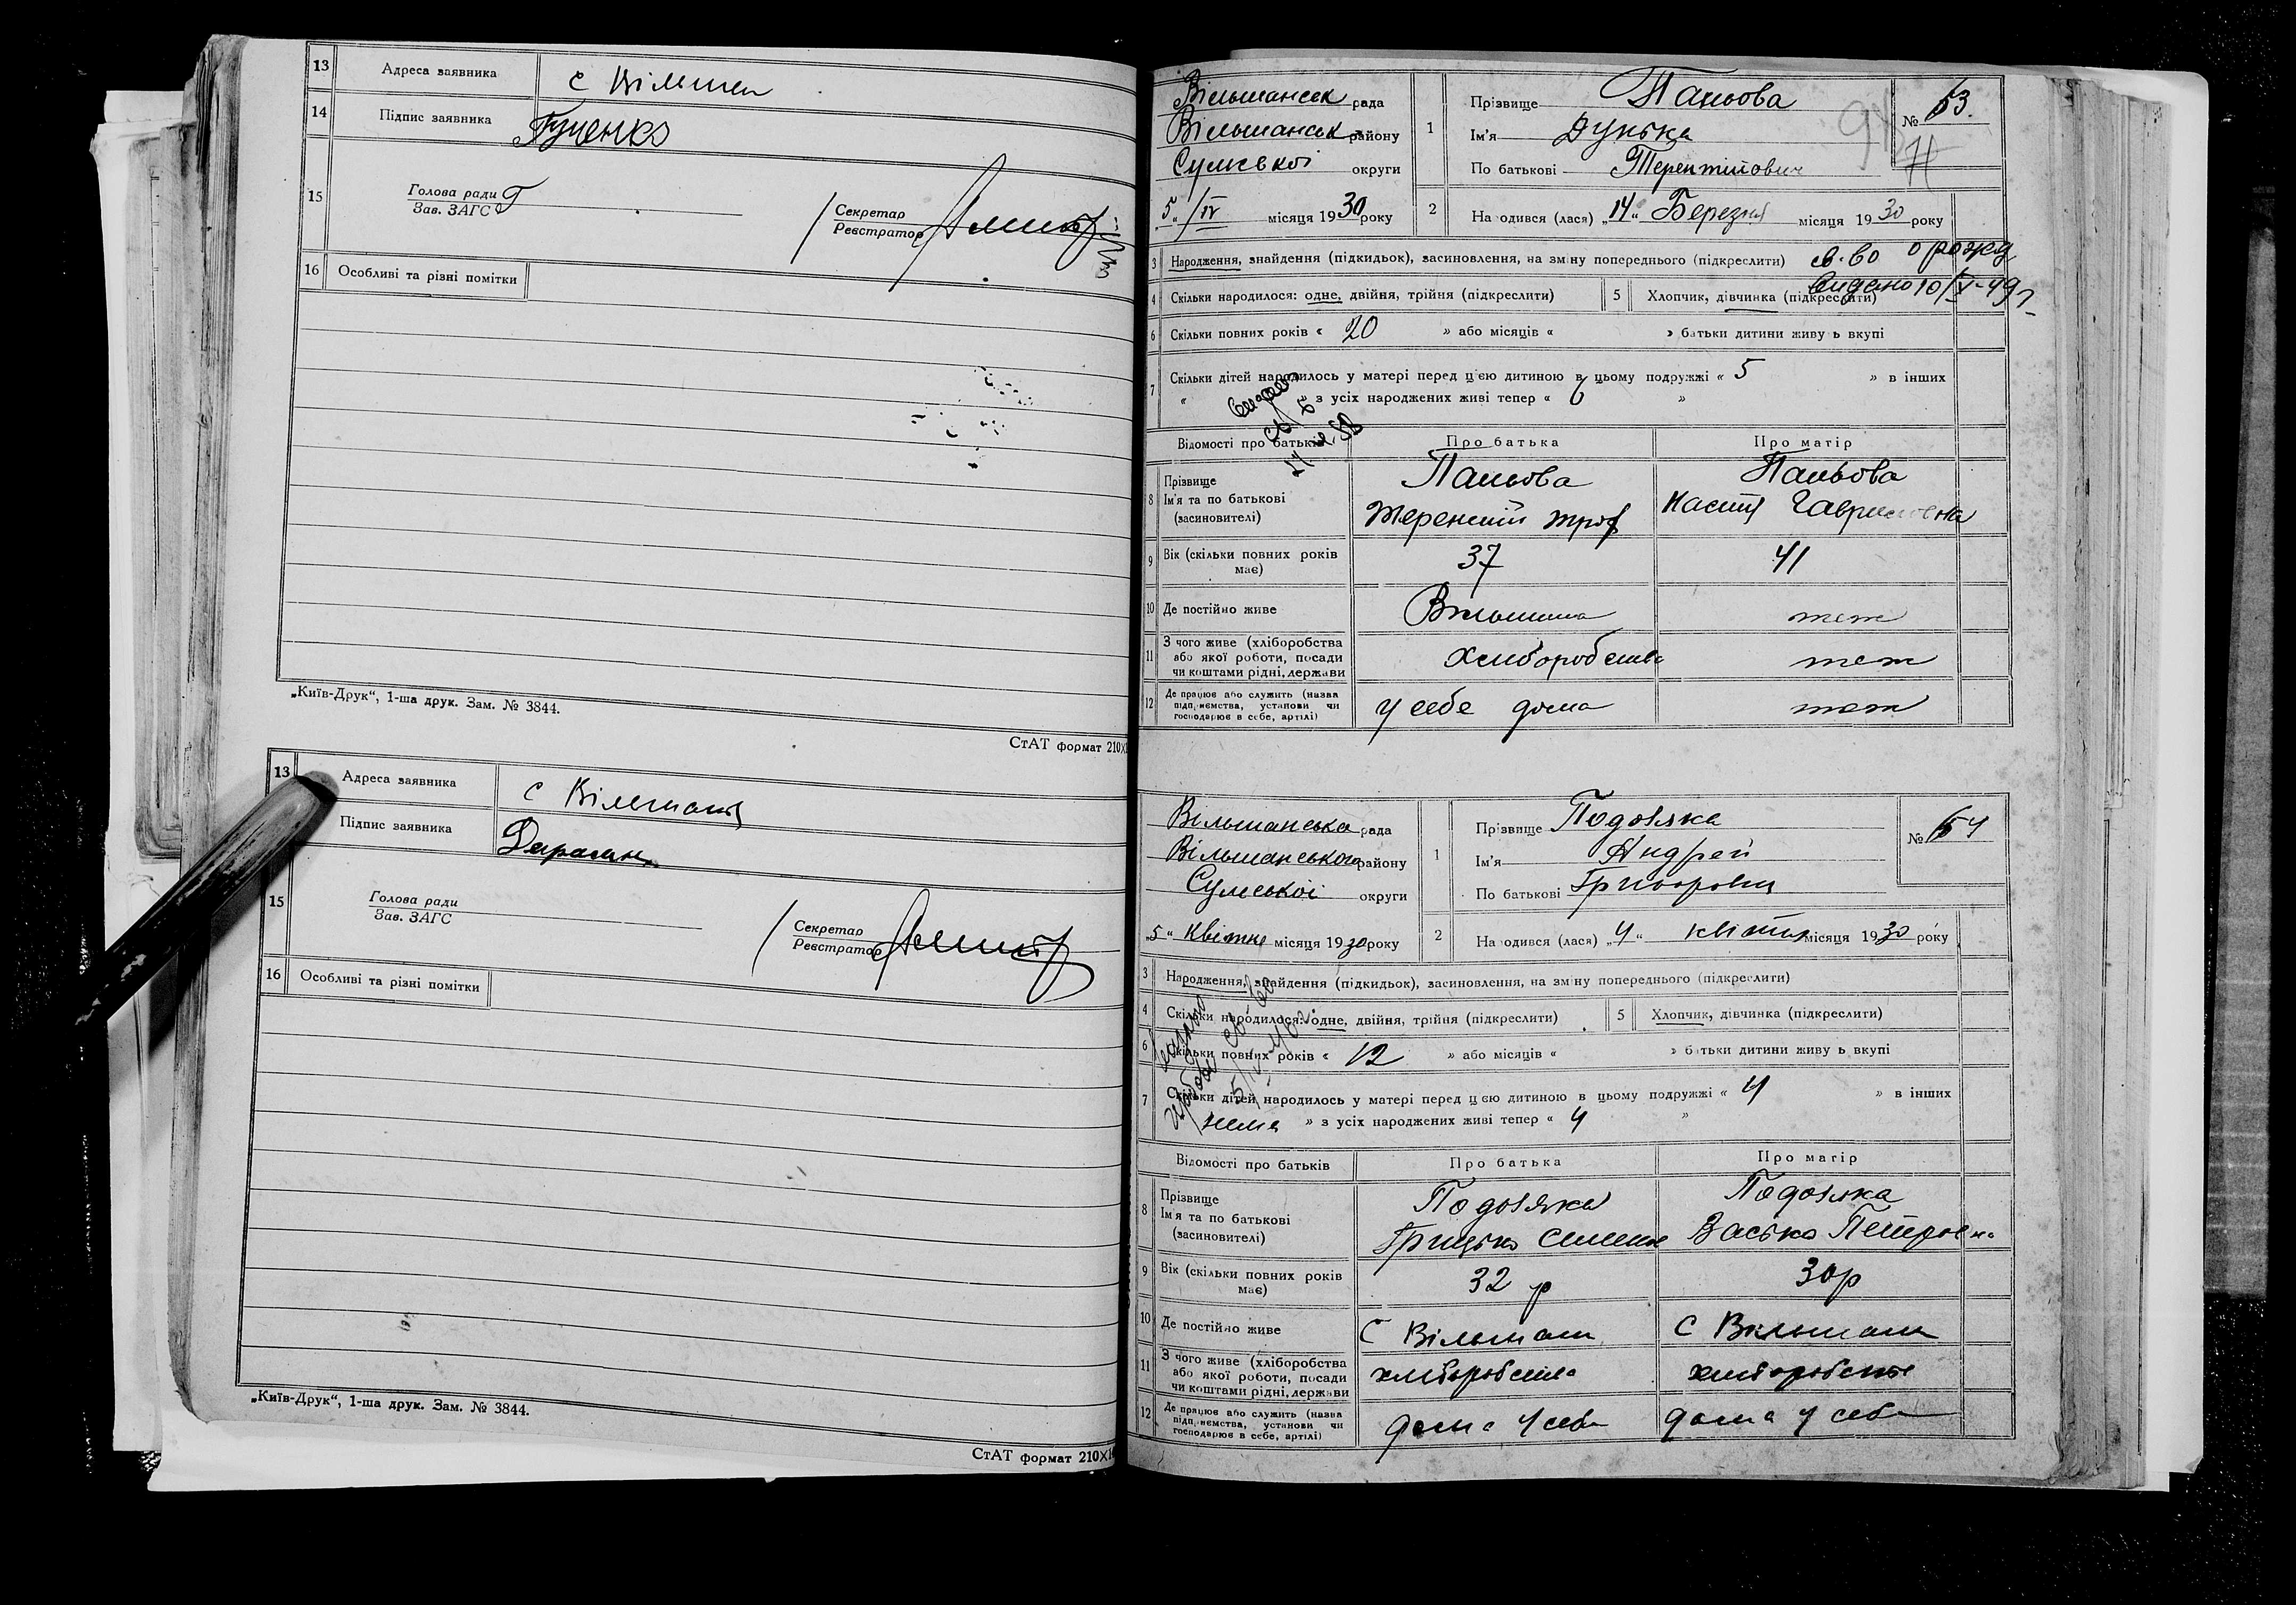 13 Адреса заявника с Вільшан
14 Підпис заявника Гученко
15 Голова ради
Зав. ЗАГС
Секретар
Реєстратор
16 Особливі та різні помітки
„Київ-Друк“, 1-ша друк. Зам. № 3844.
СтАТ формат 210X1
13 Адреса заявника с Вільшана
Підпис заявника
15 Голова ради
Зав. ЗАГС
Секретар
Реєстратор
16 Особливі та різні помітки
„Київ-Друк“, 1-ша друк. Зам. № 3844.
СтАТ формат 210X1
Вільшанськ рада
Вільшанськ району
Сумської округи
5 /IV місяця 1930 року
1 Прізвище Паньова
Ім'я Дунька
По батькові Терентійович
№ 53.
2 На одився (лася) „14“ Березня місяця 1930 року
3 Народження, знайдення (підкидьок), засиновлення, на зміну попереднього (підкреслити) св-во о рожд
4 Скільки народилося: одне, двійня, трійня (підкреслити) 5 Хлопчик, дівчинка (підкреслити) видано 10/V-49г
6 Скільки повних років « 20 » або місяців « » батьки дитини живуть вкупі
7 Скільки дітей народилось у матері перед цією дитиною в цьому подружжі « 5 » в інших
« » з усіх народжених живі тепер « 6 »
Відомості про батьків Про батька Про матір
8 Прізвище Ім'я та по батькові (засиновителі)
Паньова Паньова
Терентій Троф Настя Гавриловна
9 Вік (скільки повних років має) 37 41
10 Де постійно живе Вільшана теж
11 З чого живе (хліборобства або якої роботи, посади чи коштами рідні, держави Хліборобства теж
12 Де працює або служить (назва підприємства, установи чи господарює в себе, артілі) у себе дома теж
Вільшанська рада
Вільшанського району
Сумської округи
„5“ Квітня місяця 1930 року
1 Прізвище Подоляка
Ім'я Андрей
По батькові Григорович
№ 54
2 На одився (лася) „4“ квітня місяця 1930 року
3 Народження, знайдення (підкидьок), засиновлення, на зміну попереднього (підкреслити)
4 Скільки народилося: одне, двійня, трійня (підкреслити) 5 Хлопчик, дівчинка (підкреслити)
6 Скільки повних років « 12 » або місяців « » батьки дитини живуть вкупі
7 Скільки дітей народилось у матері перед цією дитиною в цьому подружжі « 4 » в інших
нема » з усіх народжених живі тепер « 4 »
Відомості про батьків Про батька Про матір
8 Прізвище Ім'я та по батькові (засиновителі)
Подоляка Подоляка
Грицько Семен Васька Петровна
9 Вік (скільки повних років має) 32 р 30р
10 Де постійно живе С Вільшана С Вільшана
11 З чого живе (хліборобства або якої роботи, посади чи коштами рідні, держави хліборобства хліборобства
12 Де працює або служить (назва підприємства, установи чи господарює в себе, артілі) дома у себе дома у себе